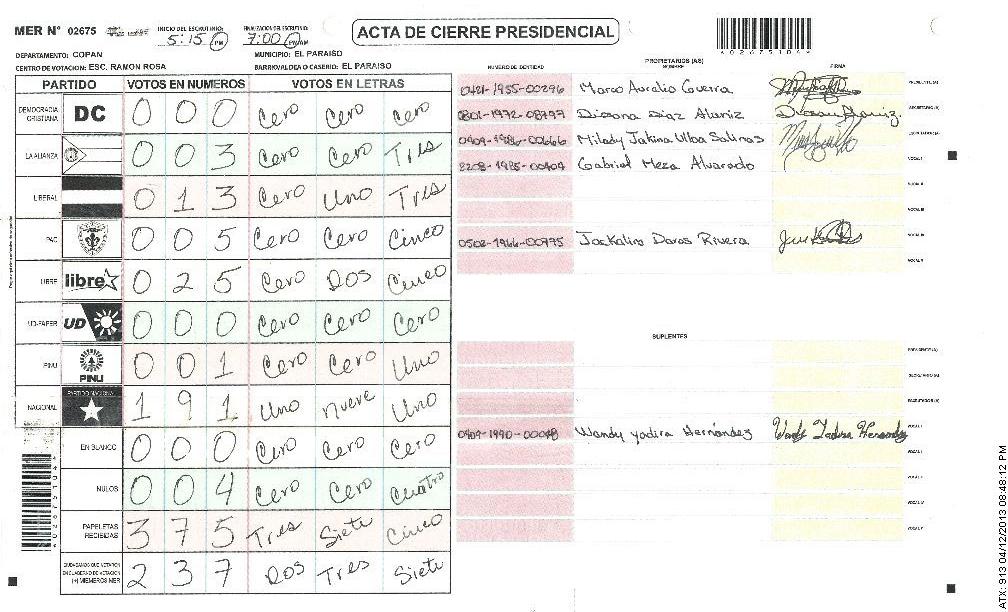 MER N° 02675
INICIO DEL ESCRUTINIO: 5:15 PM
FINALIZACION DEL ESCRUTINIO: 7:00 PM/AM
ACTA DE CIERRE PRESIDENCIAL
DEPARTAMENTO: COPAN
MUNICIPIO: EL PARAISO
CENTRO DE VOTACION: ESC. RAMON ROSA
BARRIO/ALDEA O CASERIO: EL PARAISO
PARTIDO VOTOS EN NUMEROS VOTOS EN LETRAS
DEMOCRACIA CRISTIANA DC 0 0 0 Cero Cero Cero
LA ALIANZA 0 0 3 Cero Cero Tres
LIBERAL 0 1 3 Cero Uno Tres
PAC 0 0 5 Cero Cero Cinco
LIBRE libre 0 2 5 Cero Dos Cinco
UD-FAPER UD 0 0 0 Cero Cero Cero
PINU PINU 0 0 1 Cero Cero Uno
NACIONAL PARTIDO NACIONAL 1 9 1 Uno Nueve Uno
EN BLANCO 0 0 0 Cero Cero Cero
NULOS 0 0 4 Cero Cero Cuatro
PAPELETAS RECIBIDAS 3 7 5 Tres Siete Cinco
CIUDADANOS QUE VOTARON EN CUADERNO DE VOTACION (+) MIEMBROS MER 2 3 7 Dos Tres Siete
PROPIETARIOS (AS)
NUMERO DE IDENTIDAD NOMBRE FIRMA
0421-1955-00296 Marco Aurelio Guerra PRESIDENTE (A)
0801-1972-08797 SECRETARIO (A)
0409-1986-00666 Milady ESCRUTADOR (A)
Gabriel Meza Alvarado VOCAL I
VOCAL II
VOCAL III
0502-1966-00775 Rivera VOCAL IV
VOCAL V
SUPLENTES
PRESIDENTE (A)
SECRETARIO (A)
ESCRUTADOR (A)
0409-1990-00048 Wendy Yadira Hernández VOCAL I
VOCAL II
VOCAL III
VOCAL IV
VOCAL V
ATX: 913 04/12/2013 08:48:12 PM